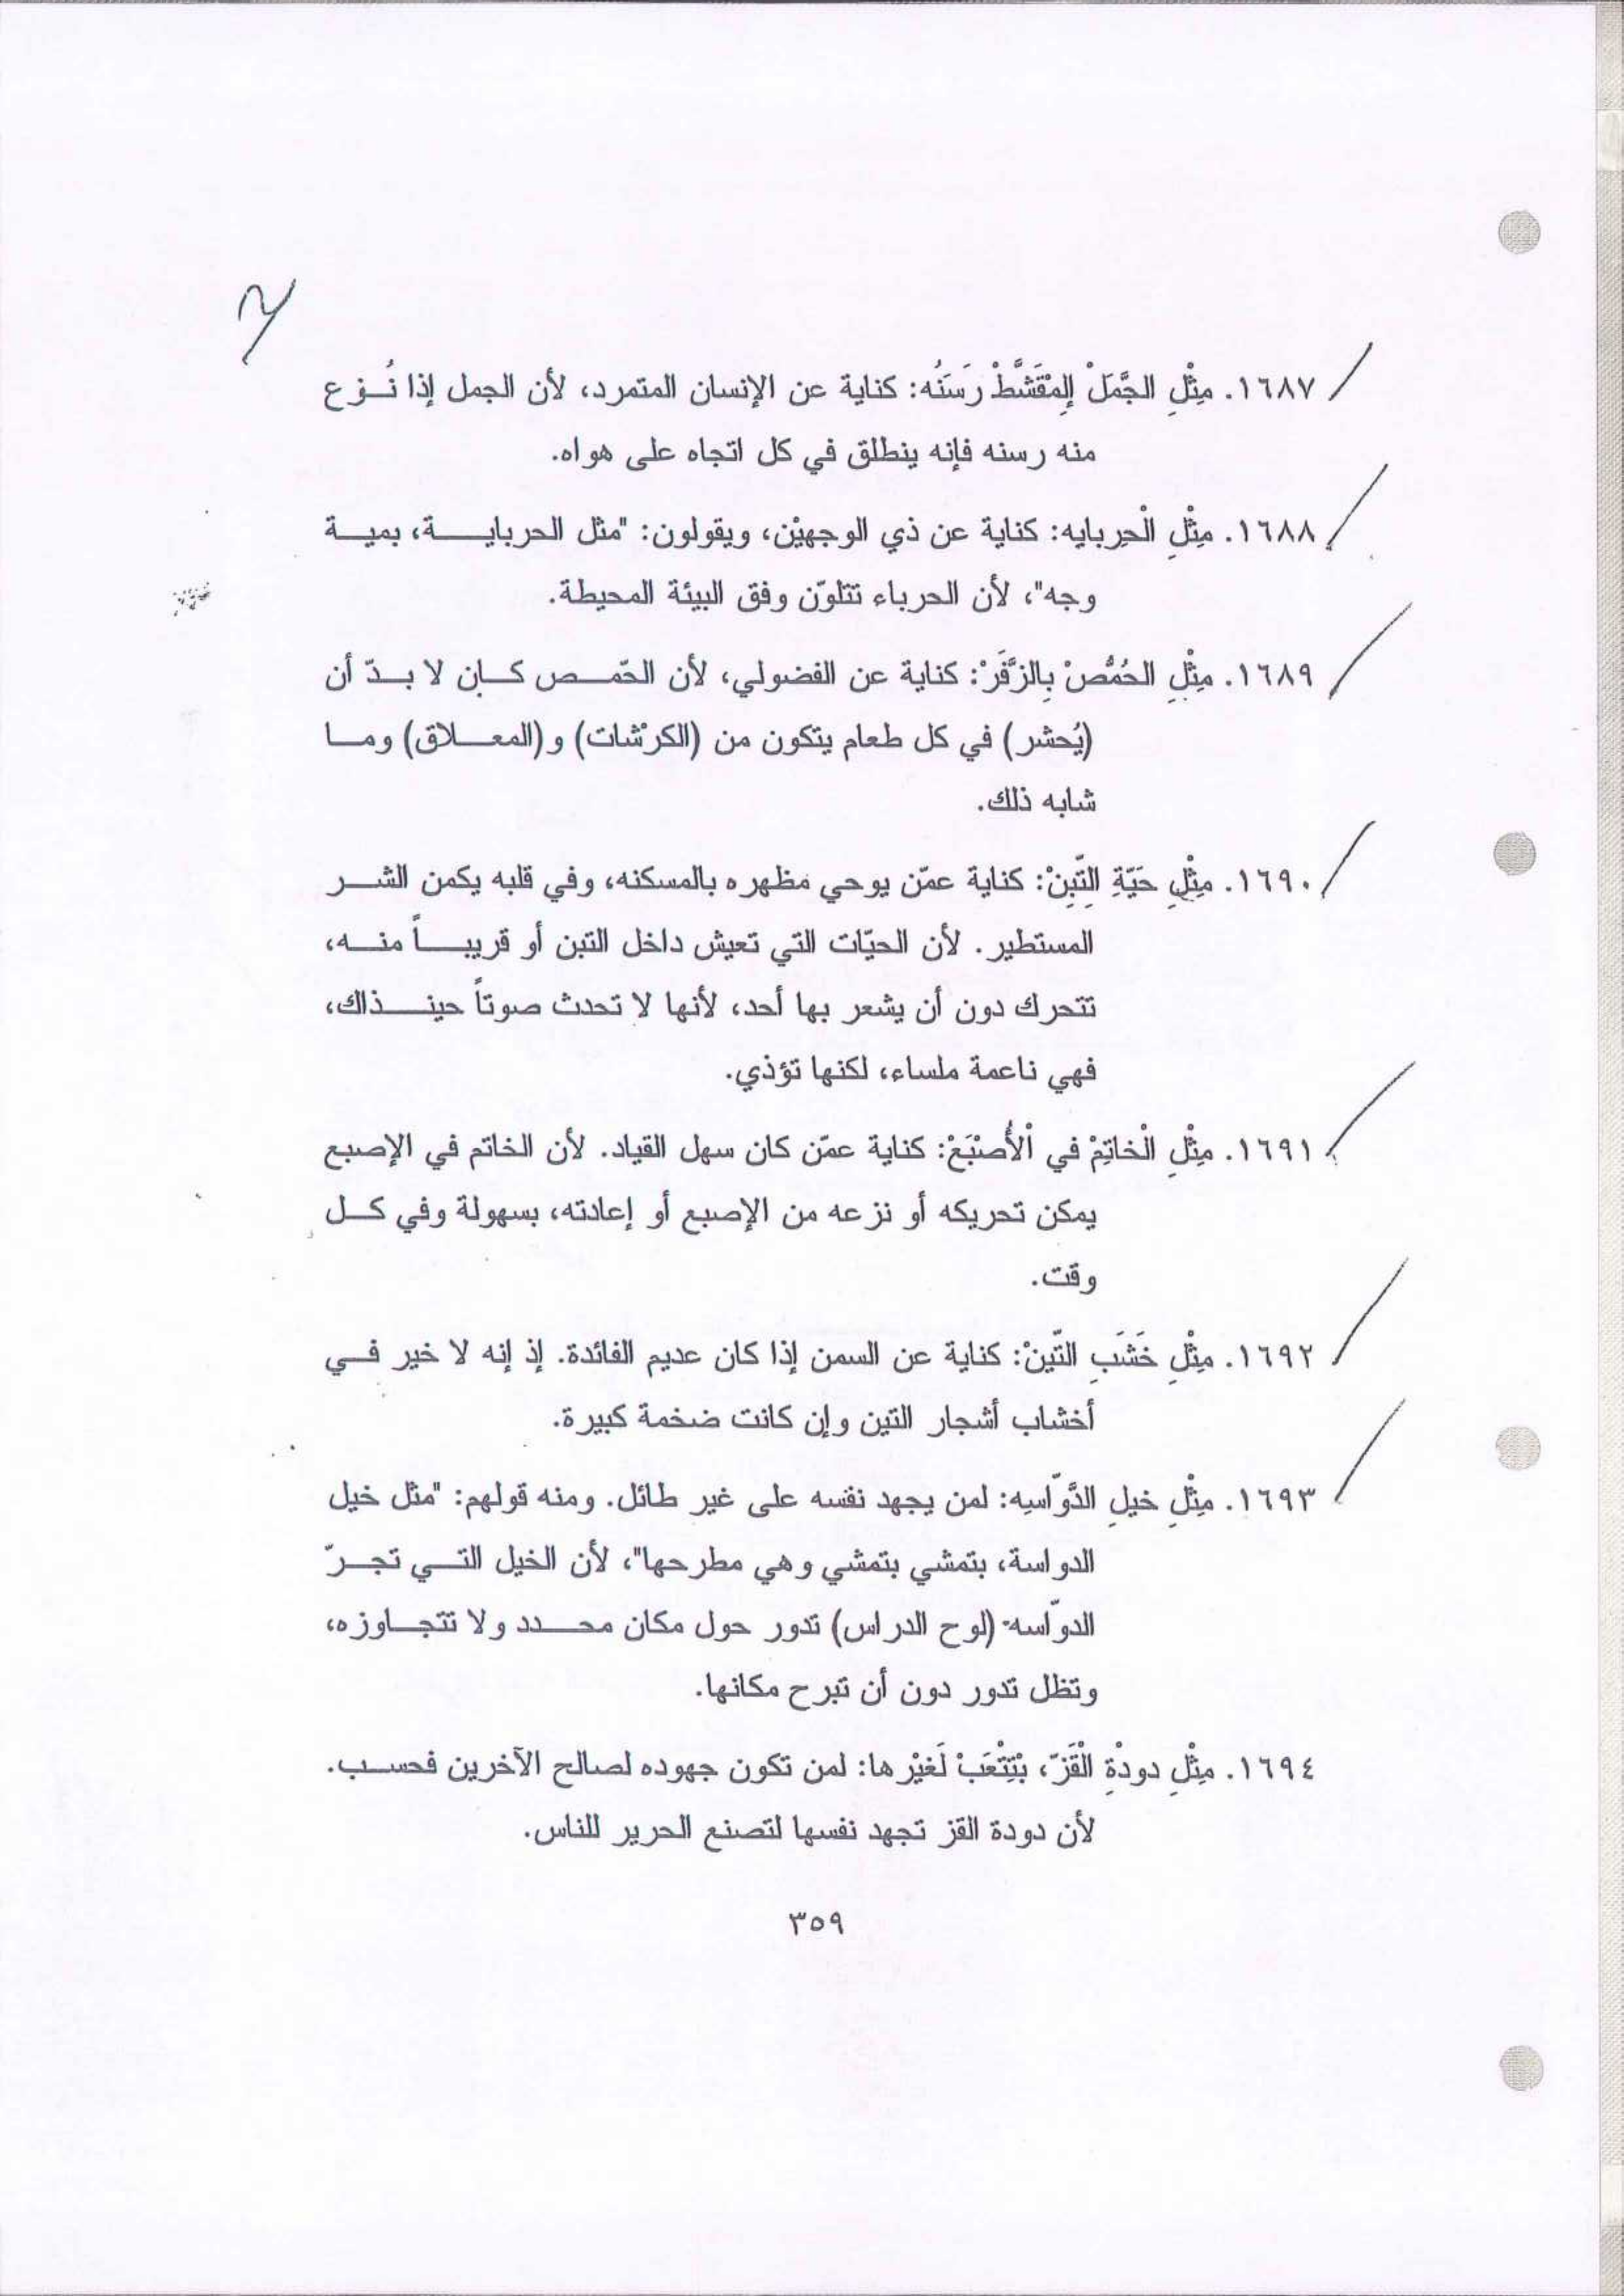 ١٦٨٧. مِثْلِ الجَّمَلْ إِلمْقَشَّطْ رَسَنُه: كناية عن الإنسان المتمرد، لأن الجمل إذا نُـزع
منه رسنه فإنه ينطلق في كل اتجاه على هواه.
١٦٨٨. مِثْلِ الْحِربايه: كناية عن ذي الوجهيْن، ويقولون: "مثل الحربايـة، بميـة
وجه"، لأن الحرباء تتلوّن وفق البيئة المحيطة.
١٦٨٩. مِثْلِ الحُمُّصْ بِالزَّفَرْ: كناية عن الفضولي، لأن الحّمـص كـان لا بـدّ أن
(يُحشر) في كل طعام يتكون من (الكرْشات) و(المعـلاق) ومـا
شابه ذلك.
١٦٩٠. مِثْلِ حَيّةِ التِّبِنْ: كناية عمّن يوحي مظهره بالمسكنه، وفي قلبه يكمن الشـر
المستطير. لأن الحيّات التي تعيش داخل التبن أو قريبـاً منـه،
تتحرك دون أن يشعر بها أحد، لأنها لا تحدث صوتاً حينـذاك،
فهي ناعمة ملساء، لكنها تؤذي.
١٦٩١. مِثْلِ الْخاتِمْ في اْلأُصْبَعْ: كناية عمّن كان سهل القياد. لأن الخاتم في الإصبع
يمكن تحريكه أو نزعه من الإصبع أو إعادته، بسهولة وفي كـل
وقت.
١٦٩٢. مِثْلِ خَشَبِ التّينْ: كناية عن السمن إذا كان عديم الفائدة. إذ إنه لا خير فـي
أخشاب أشجار التين وإن كانت ضخمة كبيرة.
١٦٩٣. مِثْلِ خيلِ الدَّوّاسِه: لمن يجهد نفسه على غير طائل. ومنه قولهم: "مثل خيل
الدواسة، بتمشي بتمشي وهي مطرحها"، لأن الخيل التـي تجـرّ
الدوّاسه (لوح الدراس) تدور حول مكان محـدد ولا تتجـاوزه،
وتظل تدور دون أن تبرح مكانها.
١٦٩٤. مِثْلِ دودْةِ الْقَزّ، بْتِتْعَبْ لَغيْرها: لمن تكون جهوده لصالح الآخرين فحسـب.
لأن دودة القز تجهد نفسها لتصنع الحرير للناس.
٣٥٩